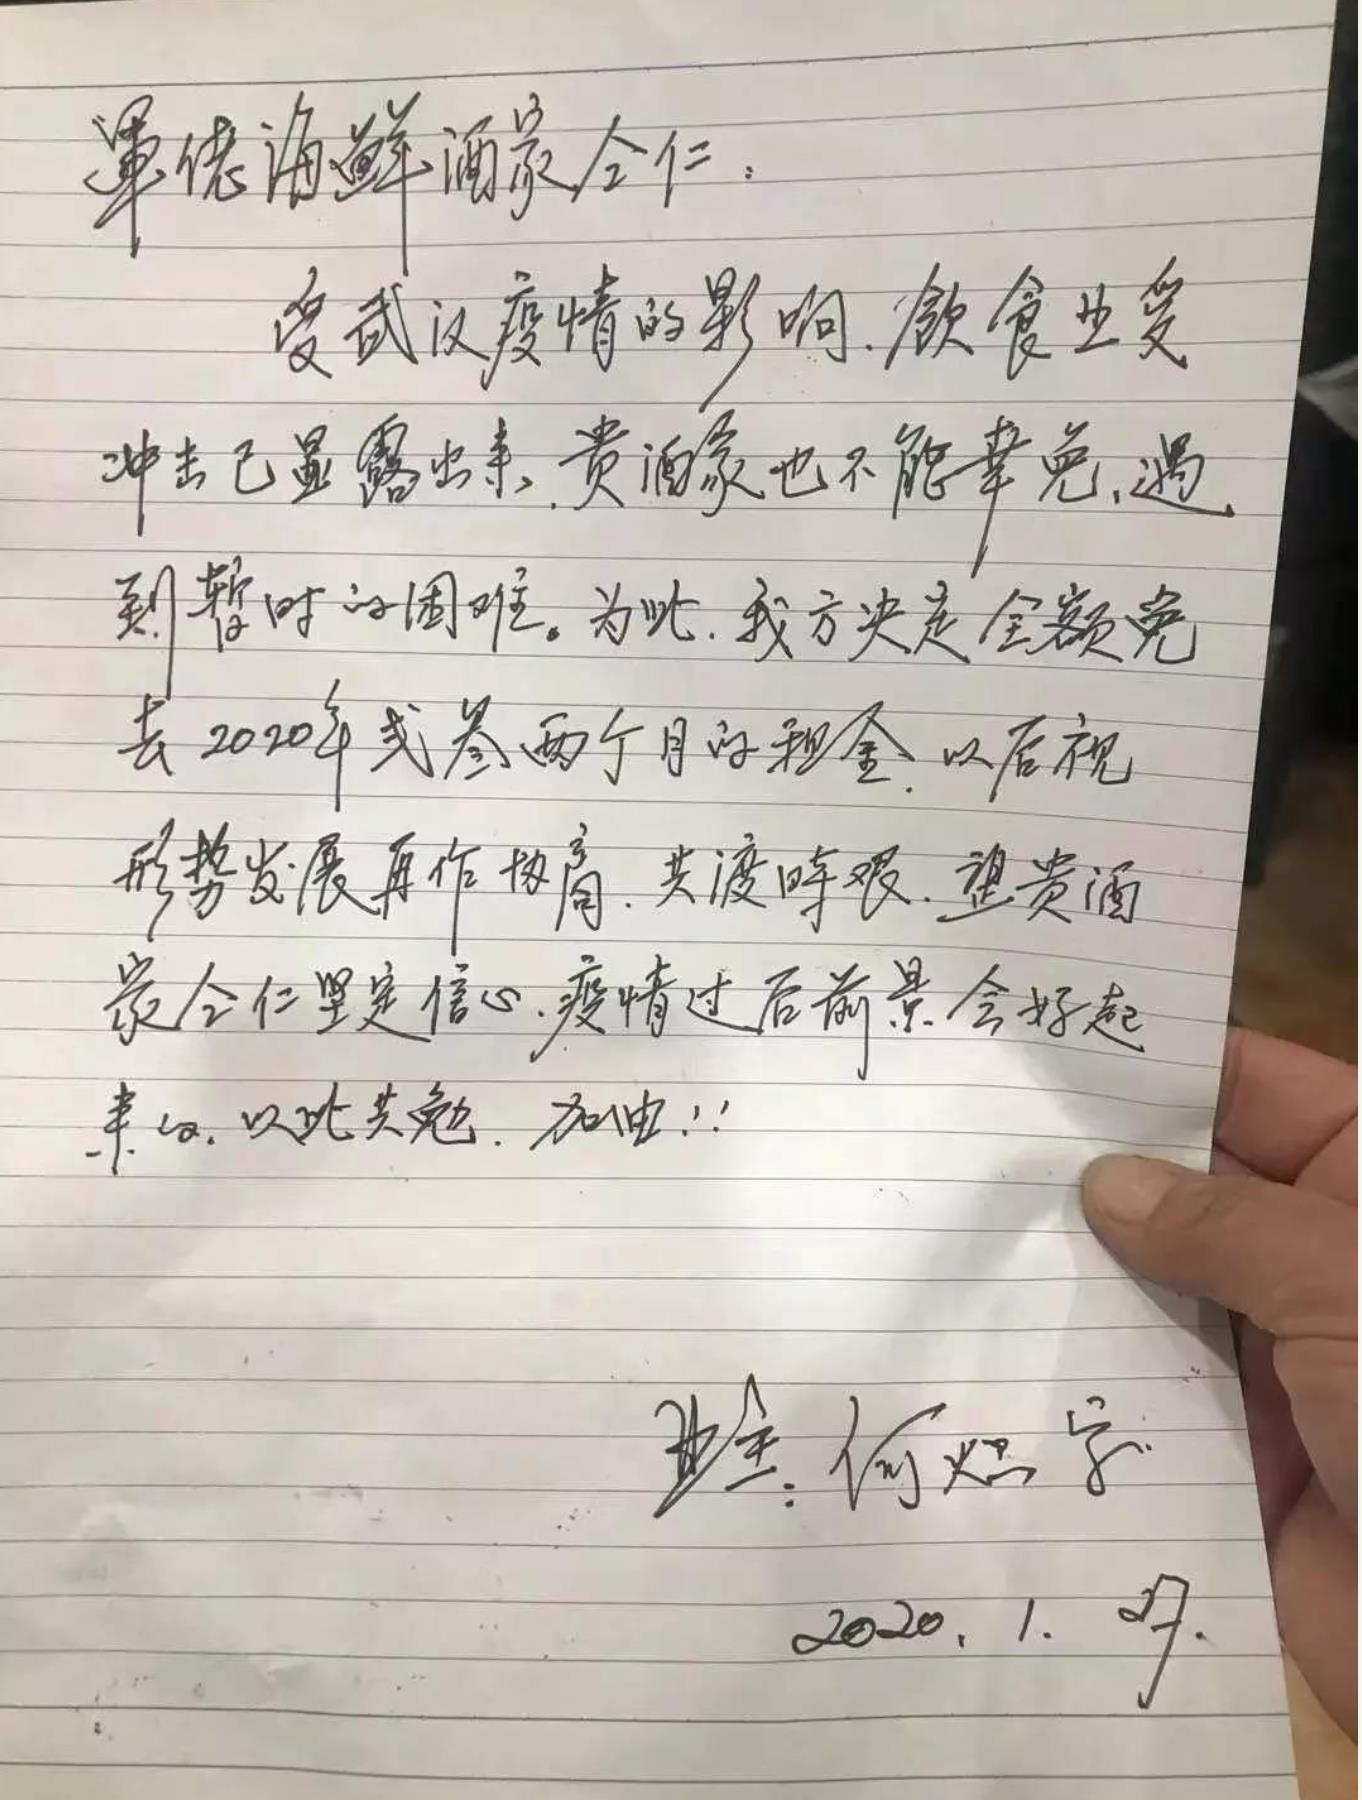 軍佬海鲜酒家仝仁：
受武汉疫情的影响.飲食业受
冲击已显露出来.贵酒家也不能幸免.遇
到暂时的困难。为此.我方决定全额免
去2020年贰叁两个月的租金.以后视
形势发展再作协商.共渡時艰.望贵酒
家仝仁坚定信心.疫情过后前景会好起
来的.以此共勉.加油!!
业主：何灿字
2020.1.27.